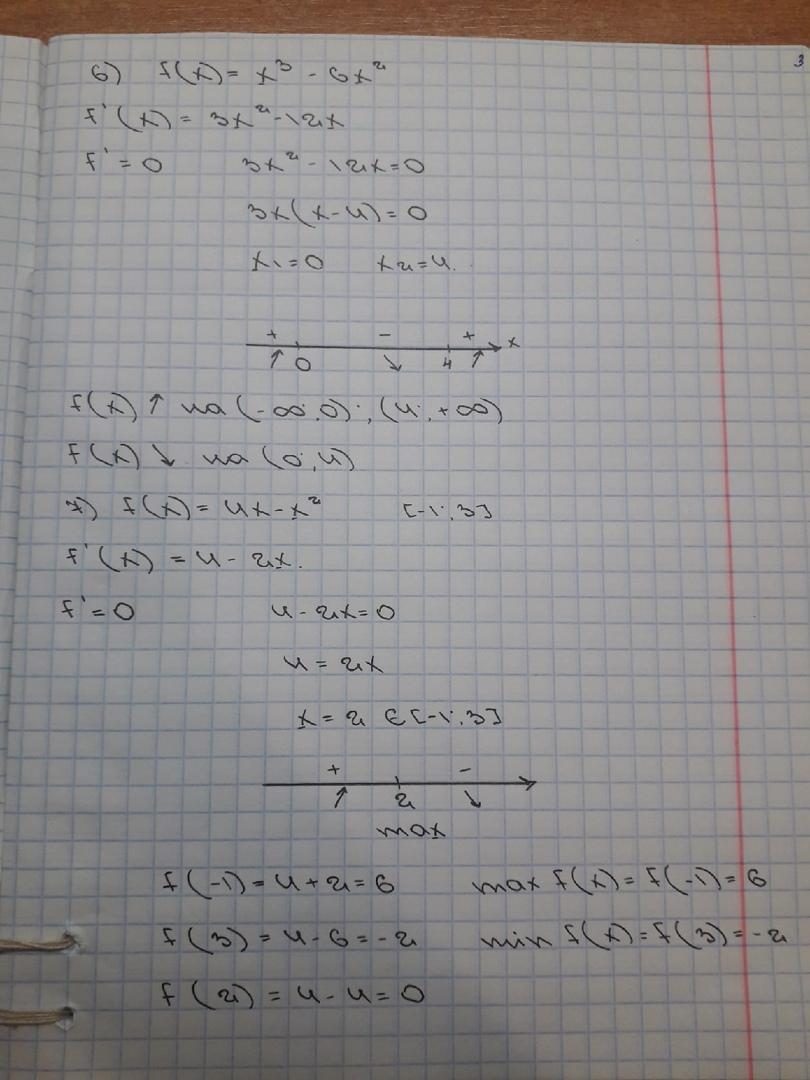 3
6) f(x) = x³ - 6x²
f'(x) = 3x² - 12x
f' = 0 3x² - 12x = 0
3x(x - 4) = 0
x₁ = 0 x₂ = 4.
+ - + x
↑ 0 ↘ 4 ↑
f(x) ↑ на (-∞; 0); (4; +∞)
f(x) ↘ на (0; 4)
7) f(x) = 4x - x² [-1; 3]
f'(x) = 4 - 2x.
f' = 0 4 - 2x = 0
4 = 2x
x = 2 ∈ [-1; 3]
+ -
↑ 2 ↘
max
f(-1) = 4 + 2 = 6 max f(x) = f(-1) = 6
f(3) = 4 - 6 = -2 min f(x) = f(3) = -2
f(2) = 4 - 4 = 0